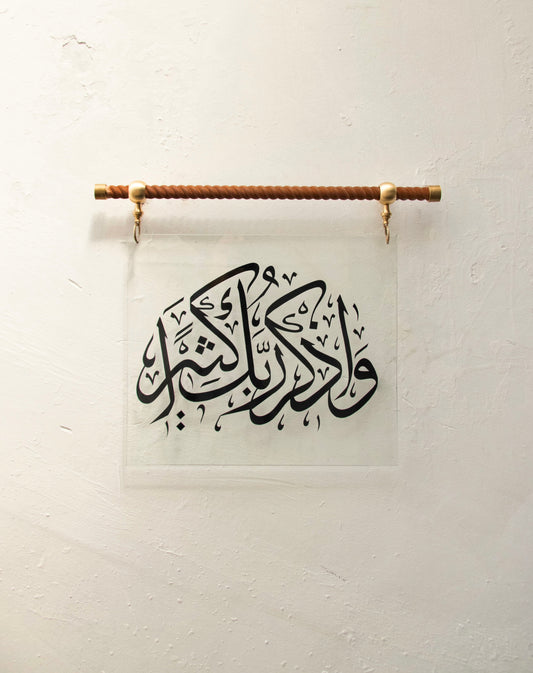 وَاذْكُرْ رَبَّكَ كَثِيرًا